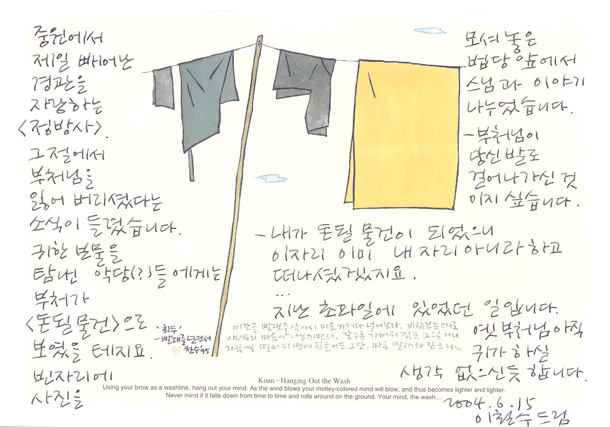 중원에서
제일 빼어난
경관을
자랑하는
<정방사>.
그 절에서
부처님을
잃어 버리셨다는
소식이 들렸습니다.
귀한 보물을
탐낸 악당(?)들에게는
부처가
<돈될 물건>으로
보였을 테지요.
빈자리에
사진을
모셔 놓은
법당 앞에서
스님과 이야기
나누었습니다.
- 부처님이
당신 발로
걸어나가신 것
이지 싶습니다.
- 내가 돈될 물건이 되었으니
이자리 이미 내 자리 아니라 하고
떠나셨겠지요.
...
지난 초파일에 있었던 일입니다.
옛 부처님 아직
귀가 하실
생각 없으신듯 합니다.
2004.6.15
이철수 드림
Koan – Hanging Out the Wash
Using your brow as a washline, hang out your mind. As the wind blows your motley-colored mind will blow; and thus becomes lighter and lighter.
Never mind if it falls down from time to time and rolls around on the ground. Your mind, the wash....